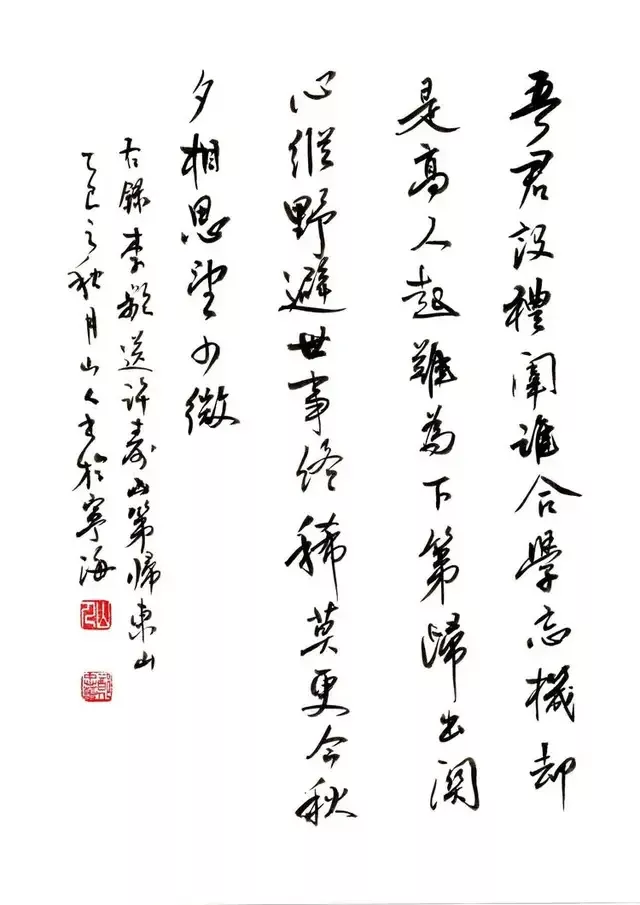 吾君設禮闈誰合學忘機却
是高人起難為下第歸出関
心縱野避世事終稀莫更今秋
夕相思望少微
右錄李頻送許壽山第歸東山
乙巳之秋月山人書於寧海